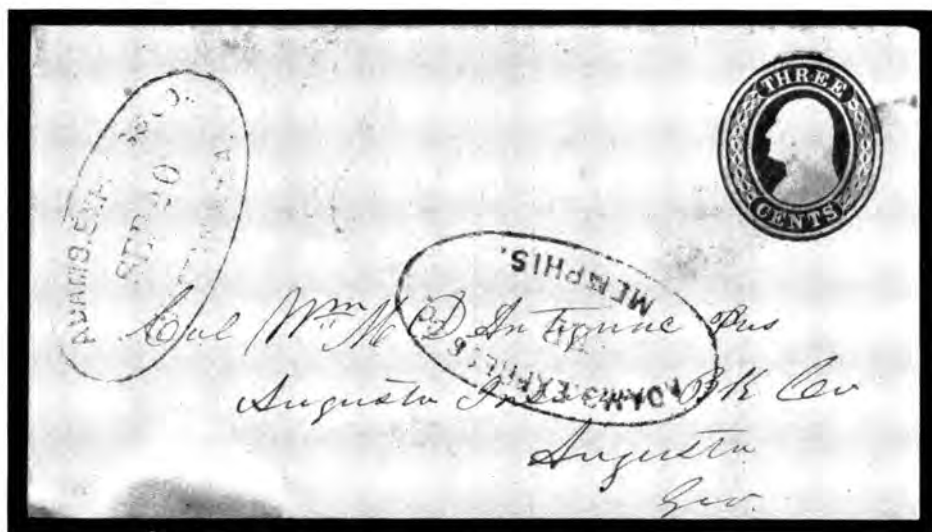 THREE
CENTS
ADAMS. EXP. CO.
SEP 20
ADAMS. EXPRESS
MEMPHIS.
Col Wm M
Augusta Ins BK Co
Augusta
Geo.